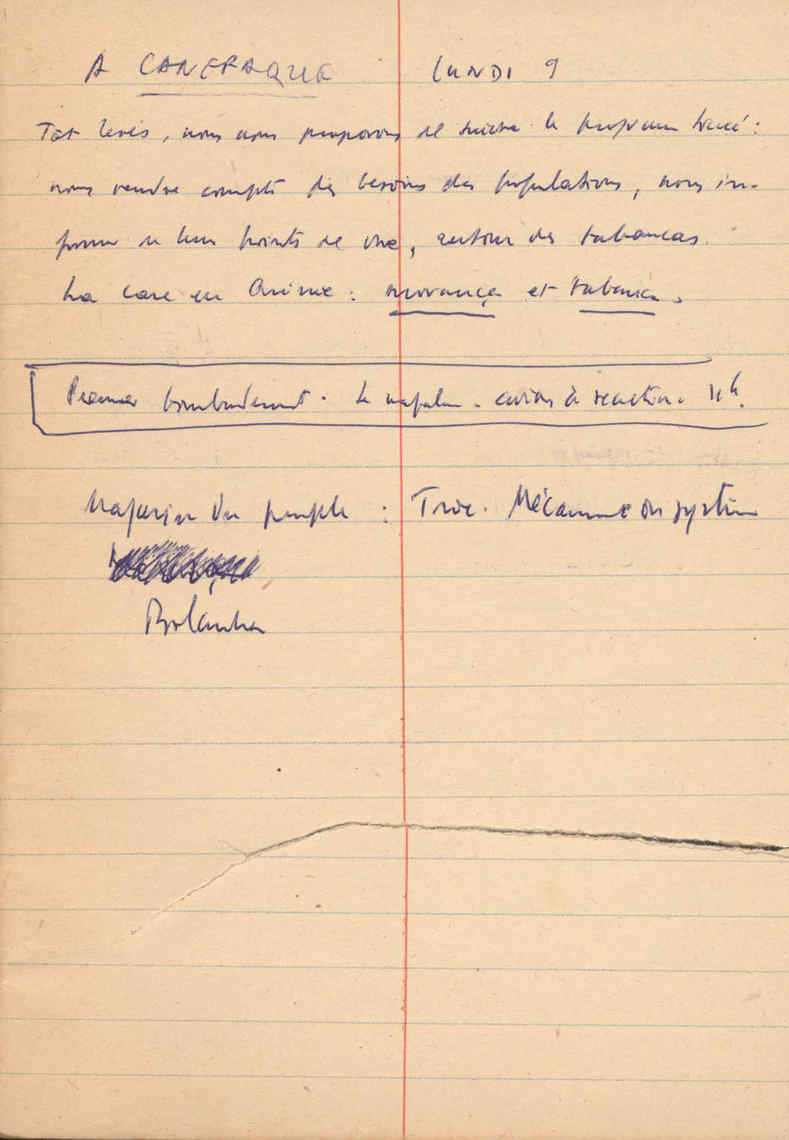 A CANEFAQUE LUNDI 9
Tôt levés, nous nous proposons de suivre le programme tracé :
nous rendre compte des besoins des populations, nous in-
former de leurs points de vue, autour des tabancas.
La case en Guinée : morança et tabanca.
Premier bombardement. Le napalm. avions à réaction. 11h.
Magasin du peuple : Troc. Mécanisme du système
Bolanha